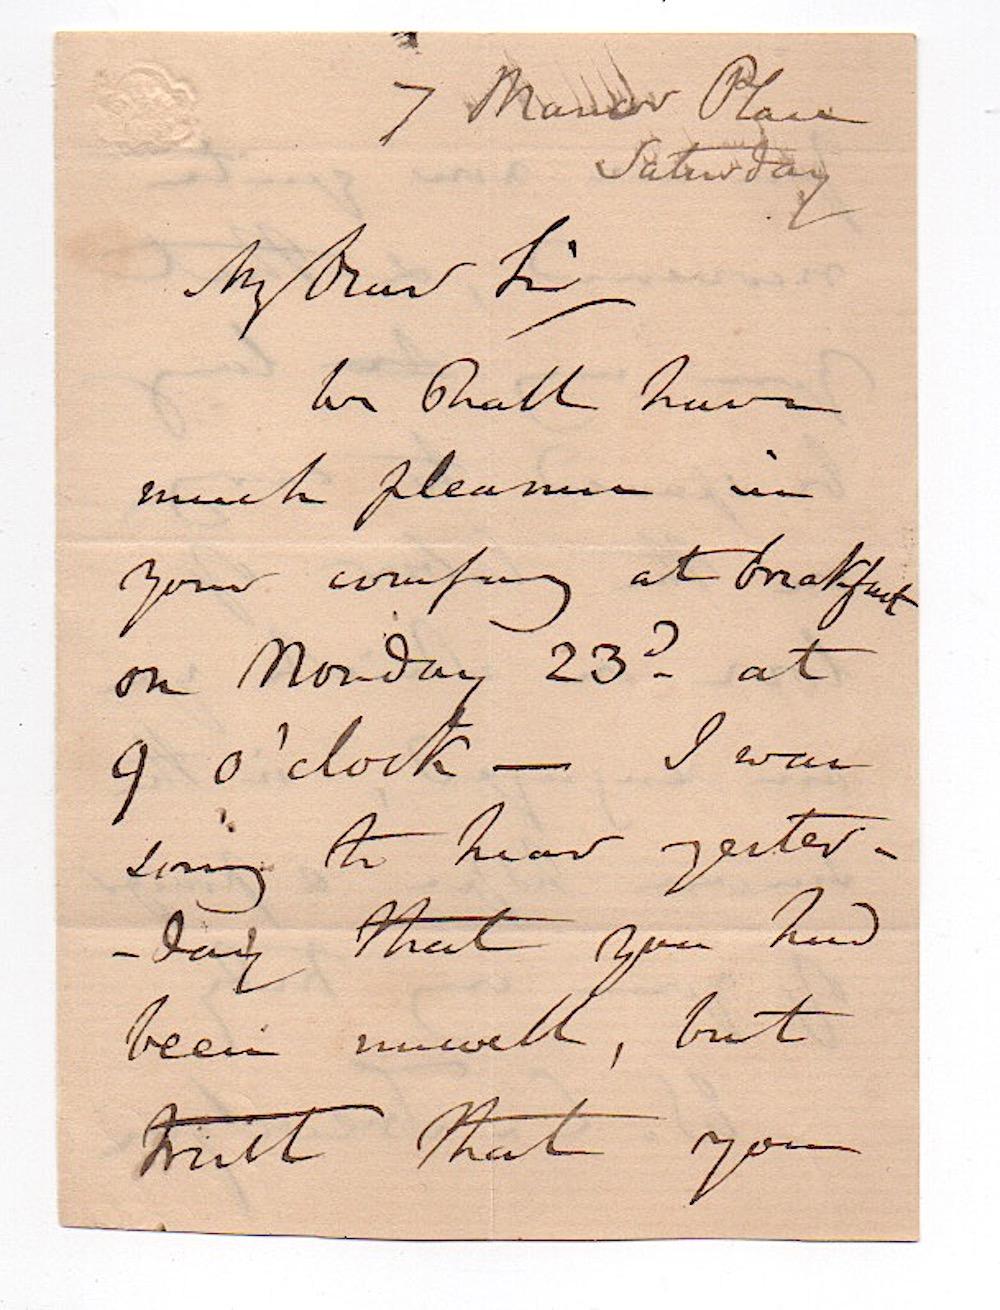 7 Manor Place
Saturday
My Dear Sir
We shall have
much pleasure in
your company at breakfast
on Monday 23d. at
9 o'clock — I was
sorry to hear yester-
-day that you had
been unwell, but
trust that you